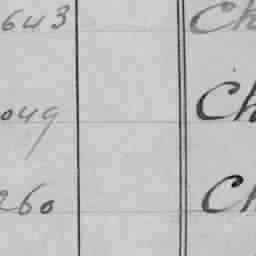 643 Ch
049 Ch
260 Ch